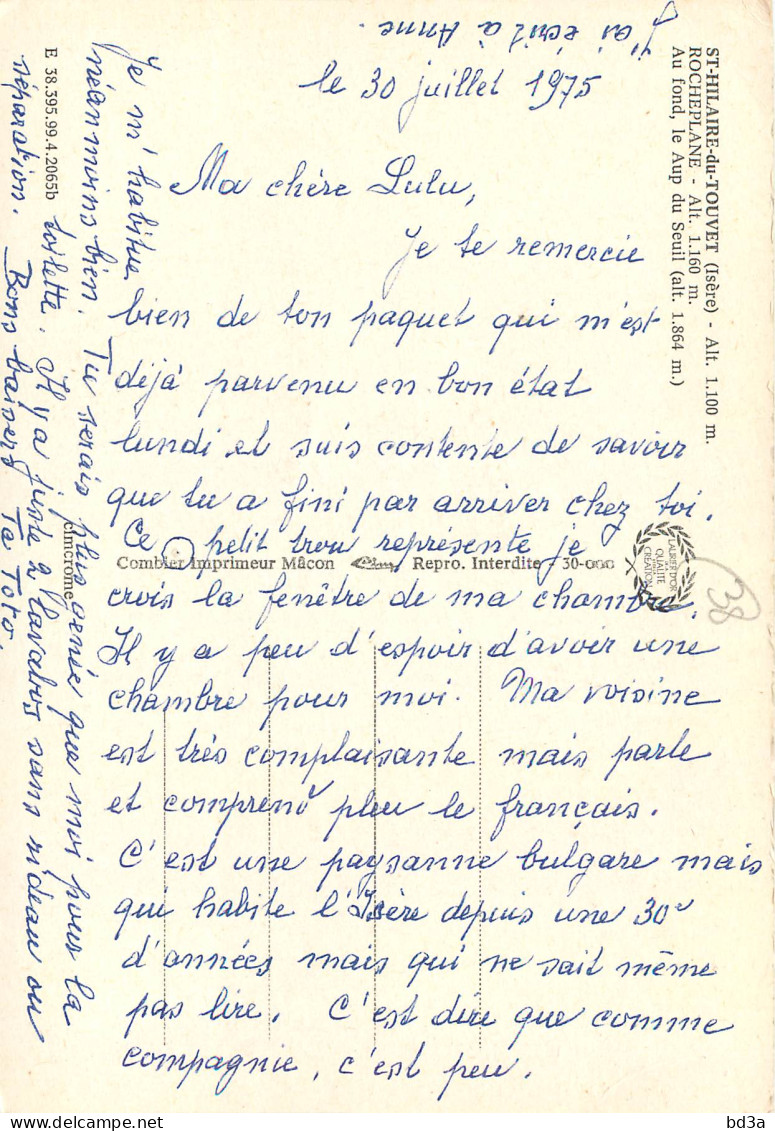 J'ai écrit à Anne.
le 30 juillet 1975
Ma chère Lulu,
Je te remercie
bien de ton paquet qui m'est
déjà parvenu en bon état
lundi et suis contente de savoir
que tu a fini par arriver chez toi.
Ce petit trou représente je
crois la fenêtre de ma chambre.
Il y a peu d'espoir d'avoir une
chambre pour moi. Ma voisine
est très complaisante mais parle
et comprend peu le français.
C'est une paysanne bulgare mais
qui habite l'Isère depuis une 30e
d'années mais qui ne sait même
pas lire. C'est dire que comme
compagnie, c'est peu.
Je m'habitue
néanmoins bien. Tu serais plus gênée que moi pour la
toilette. Il y a juste 2 lavabos sans rideau ou
séparation. Bons baisers Ta Toto.
ST-HILAIRE-du-TOUVET (Isère) - Alt. 1.100 m.
ROCHEPLANE - Alt. 1.160 m.
Au fond, le Aup du Seuil (alt. 1.864 m.)
E 38.395.99.4.2065b
cimcrome
Combier Imprimeur Mâcon Cim Repro. Interdite - 30-000
LAURIER D'OR
DE LA
QUALITÉ
CRÉATION
38
www.bd3a